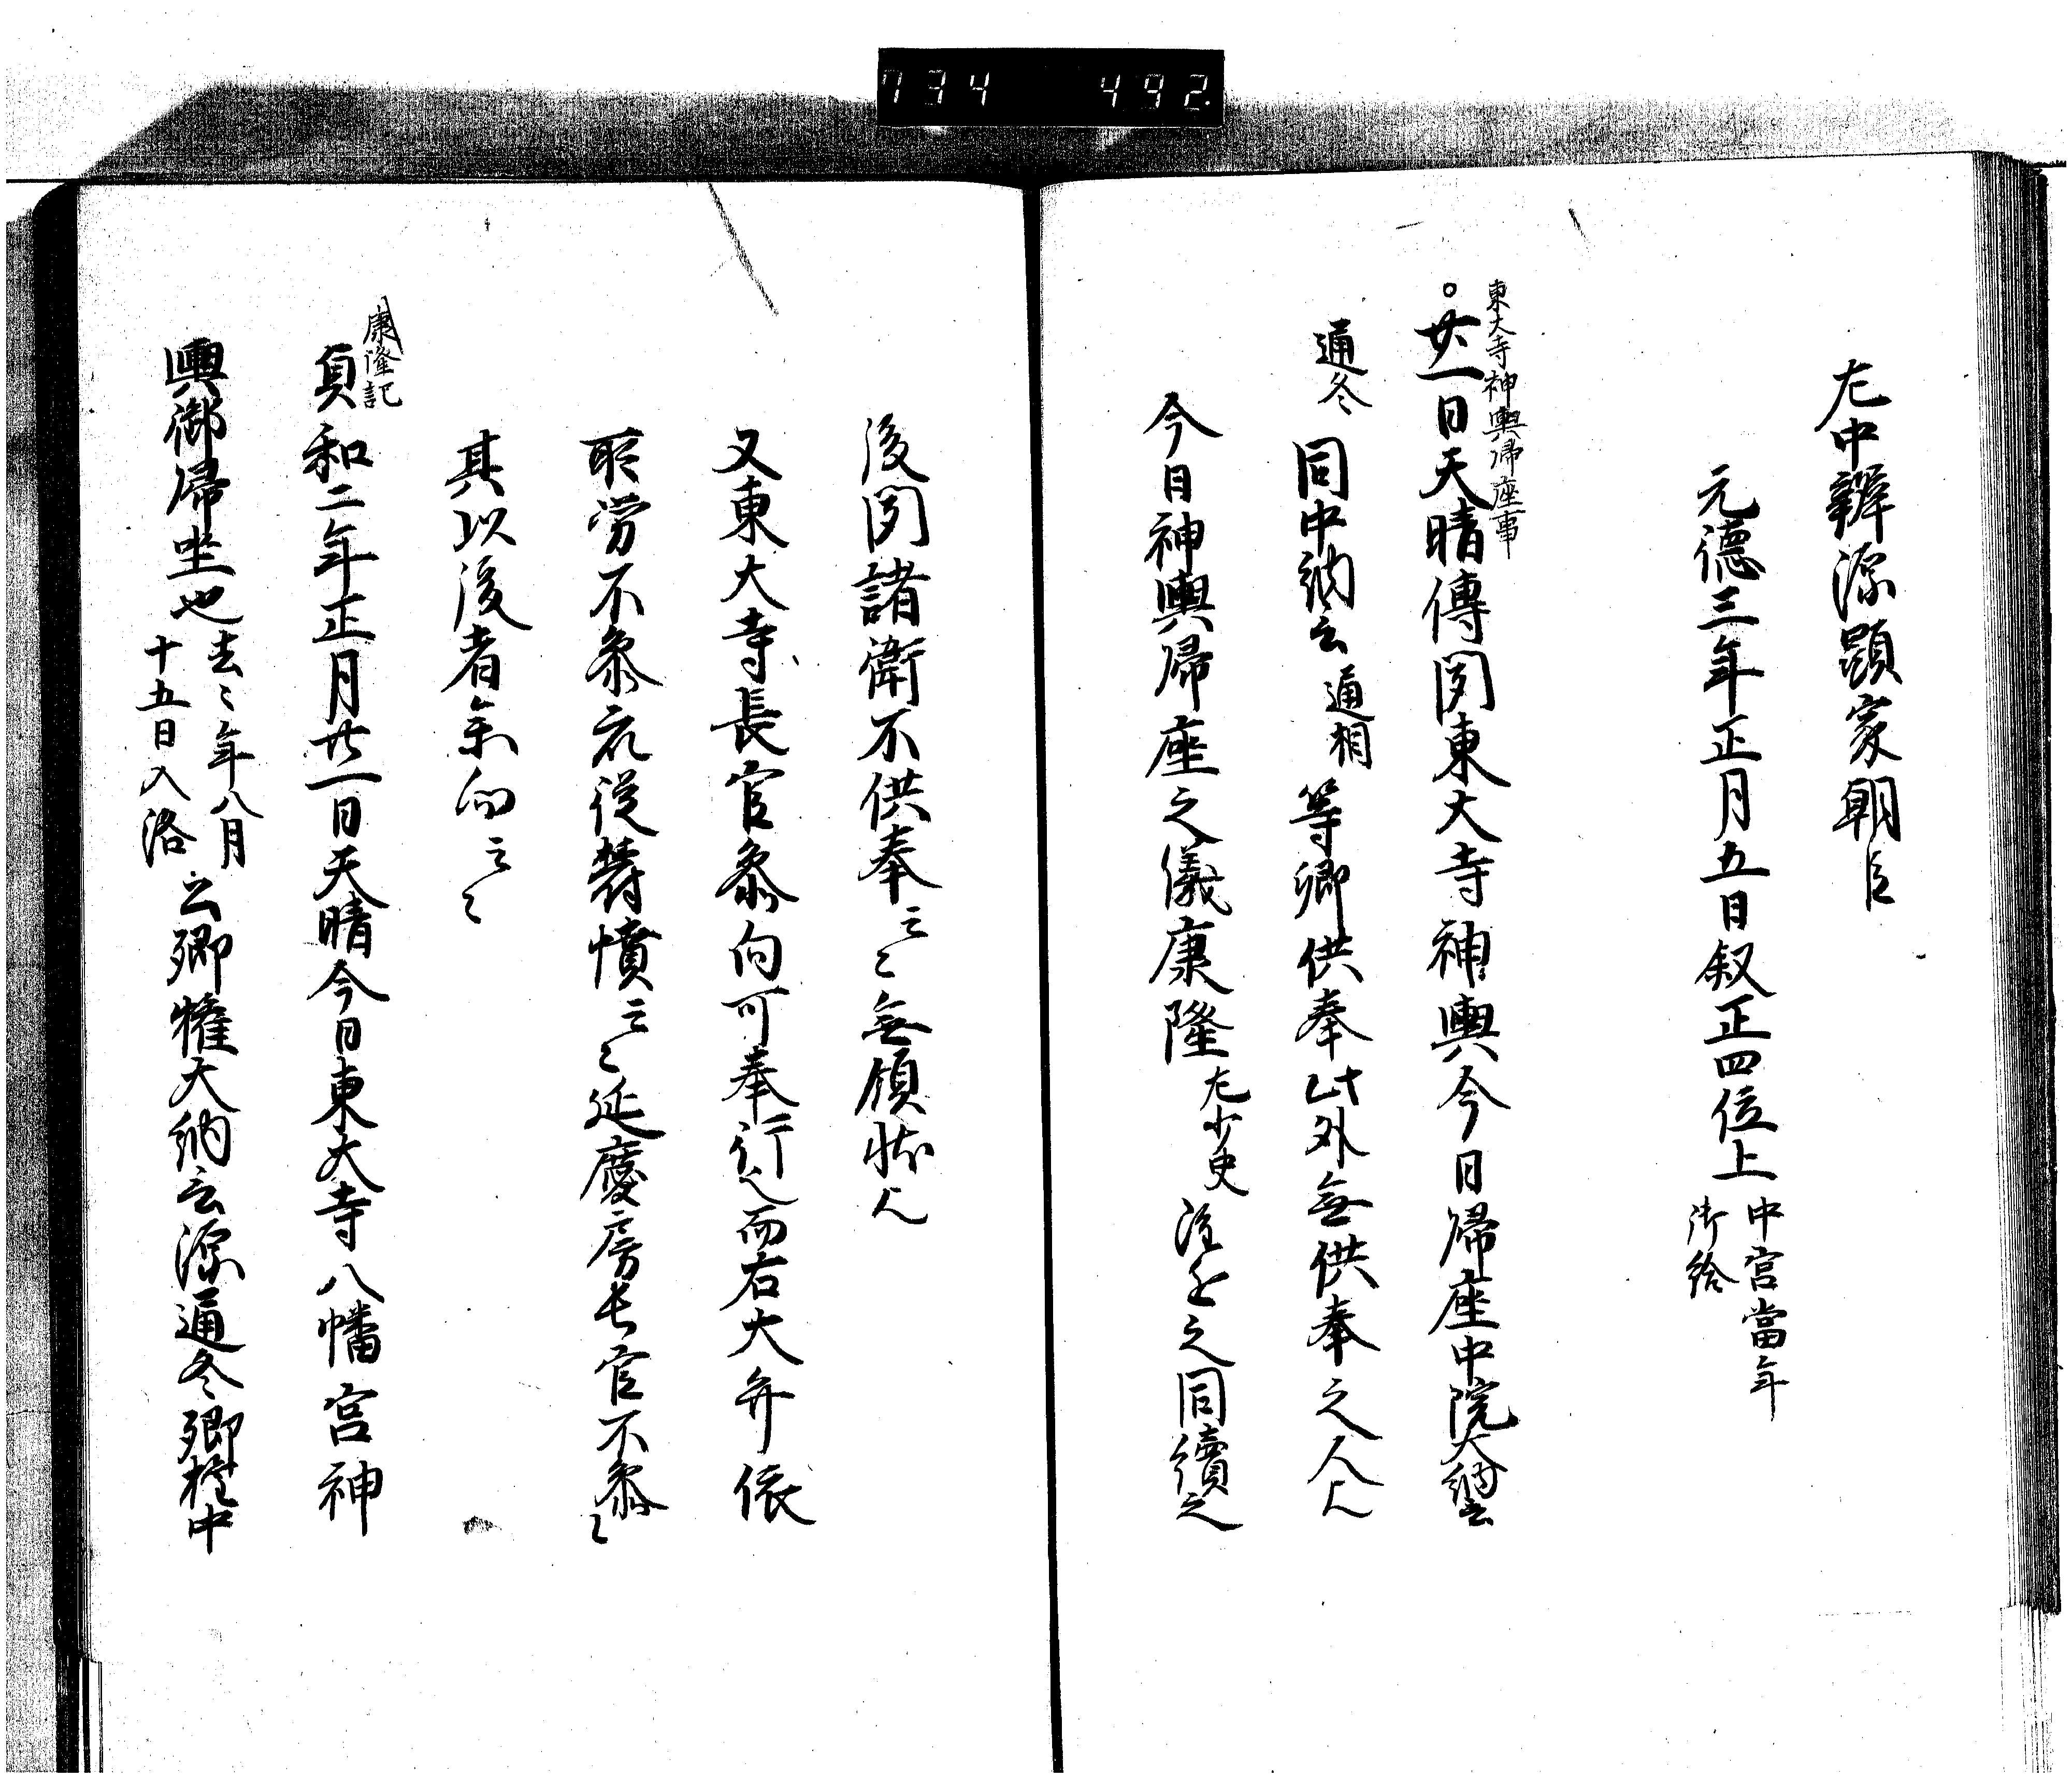 734 492
左中辨源顕家朝臣
元徳三年正月五日叙正四位上 中宮當年御給
東大寺神輿帰座事
廿一日天晴傳聞東大寺神輿今日帰座中院大納言
通冬 同中納言 通相 等卿供奉此外無供奉之人々
今日神輿帰座之儀康隆 左少史 注進之同續之
後聞諸衛不供奉云々無領状人
又東大寺長官参向可奉行之而右大弁依
所労不参衣從替憤云々延慶房長官不参々
其以後者参向云々
康隆記
貞和二年正月廿一日天晴今日東大寺八幡宮神
輿御帰坐也 去々年八月十五日入洛 公卿権大納言源通冬卿権中